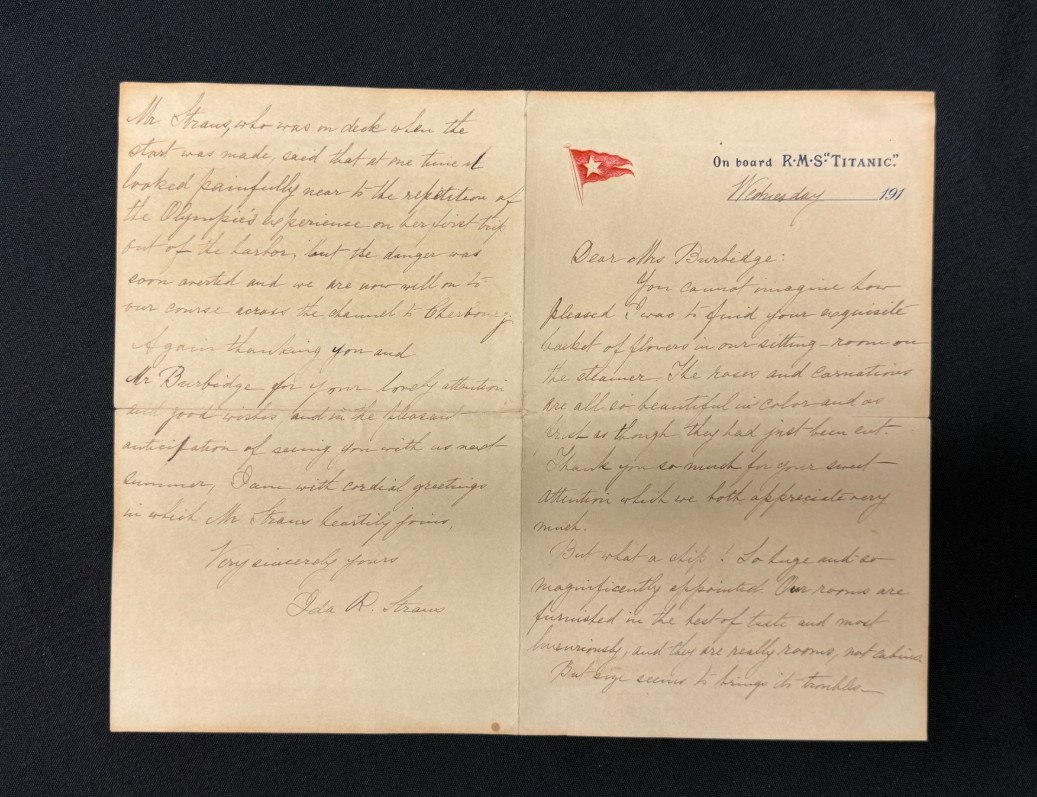 On board R·M·S "TITANIC."
Wednesday 191
Dear Mrs Burbidge:
You cannot imagine how
pleased I was to find your exquisite
basket of flowers in our sitting-room on
the steamer. The roses and carnations
are all so beautiful in color and as
fresh as though they had just been cut.
Thank you so much for your sweet
attention which we both appreciate very
much.
But what a ship! So huge and so
magnificently appointed. Our rooms are
furnished in the best of taste and most
luxuriously, and they are really rooms, not cabins.
But size seems to bring its troubles—
Mr Straus, who was on deck when the
start was made, said that at one time it
looked painfully near to the repetition of
the Olympic's experience on her first trip
out of the harbor, but the danger was
soon averted and we are now well on to
our course across the channel to Cherbourg
Again thanking you and
Mr Burbidge for your lovely attention
and good wishes, and in the pleasant
anticipation of seeing you with us next
summer, I am with cordial greetings
in which Mr Straus heartily joins,
Very sincerely yours
Ida R. Straus